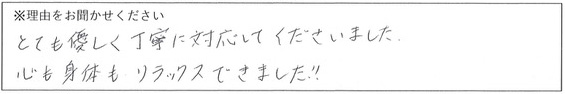 ※理由をお聞かせください
とても優しく丁寧に対応してくださいました.
心も身体もリラックスできました!!